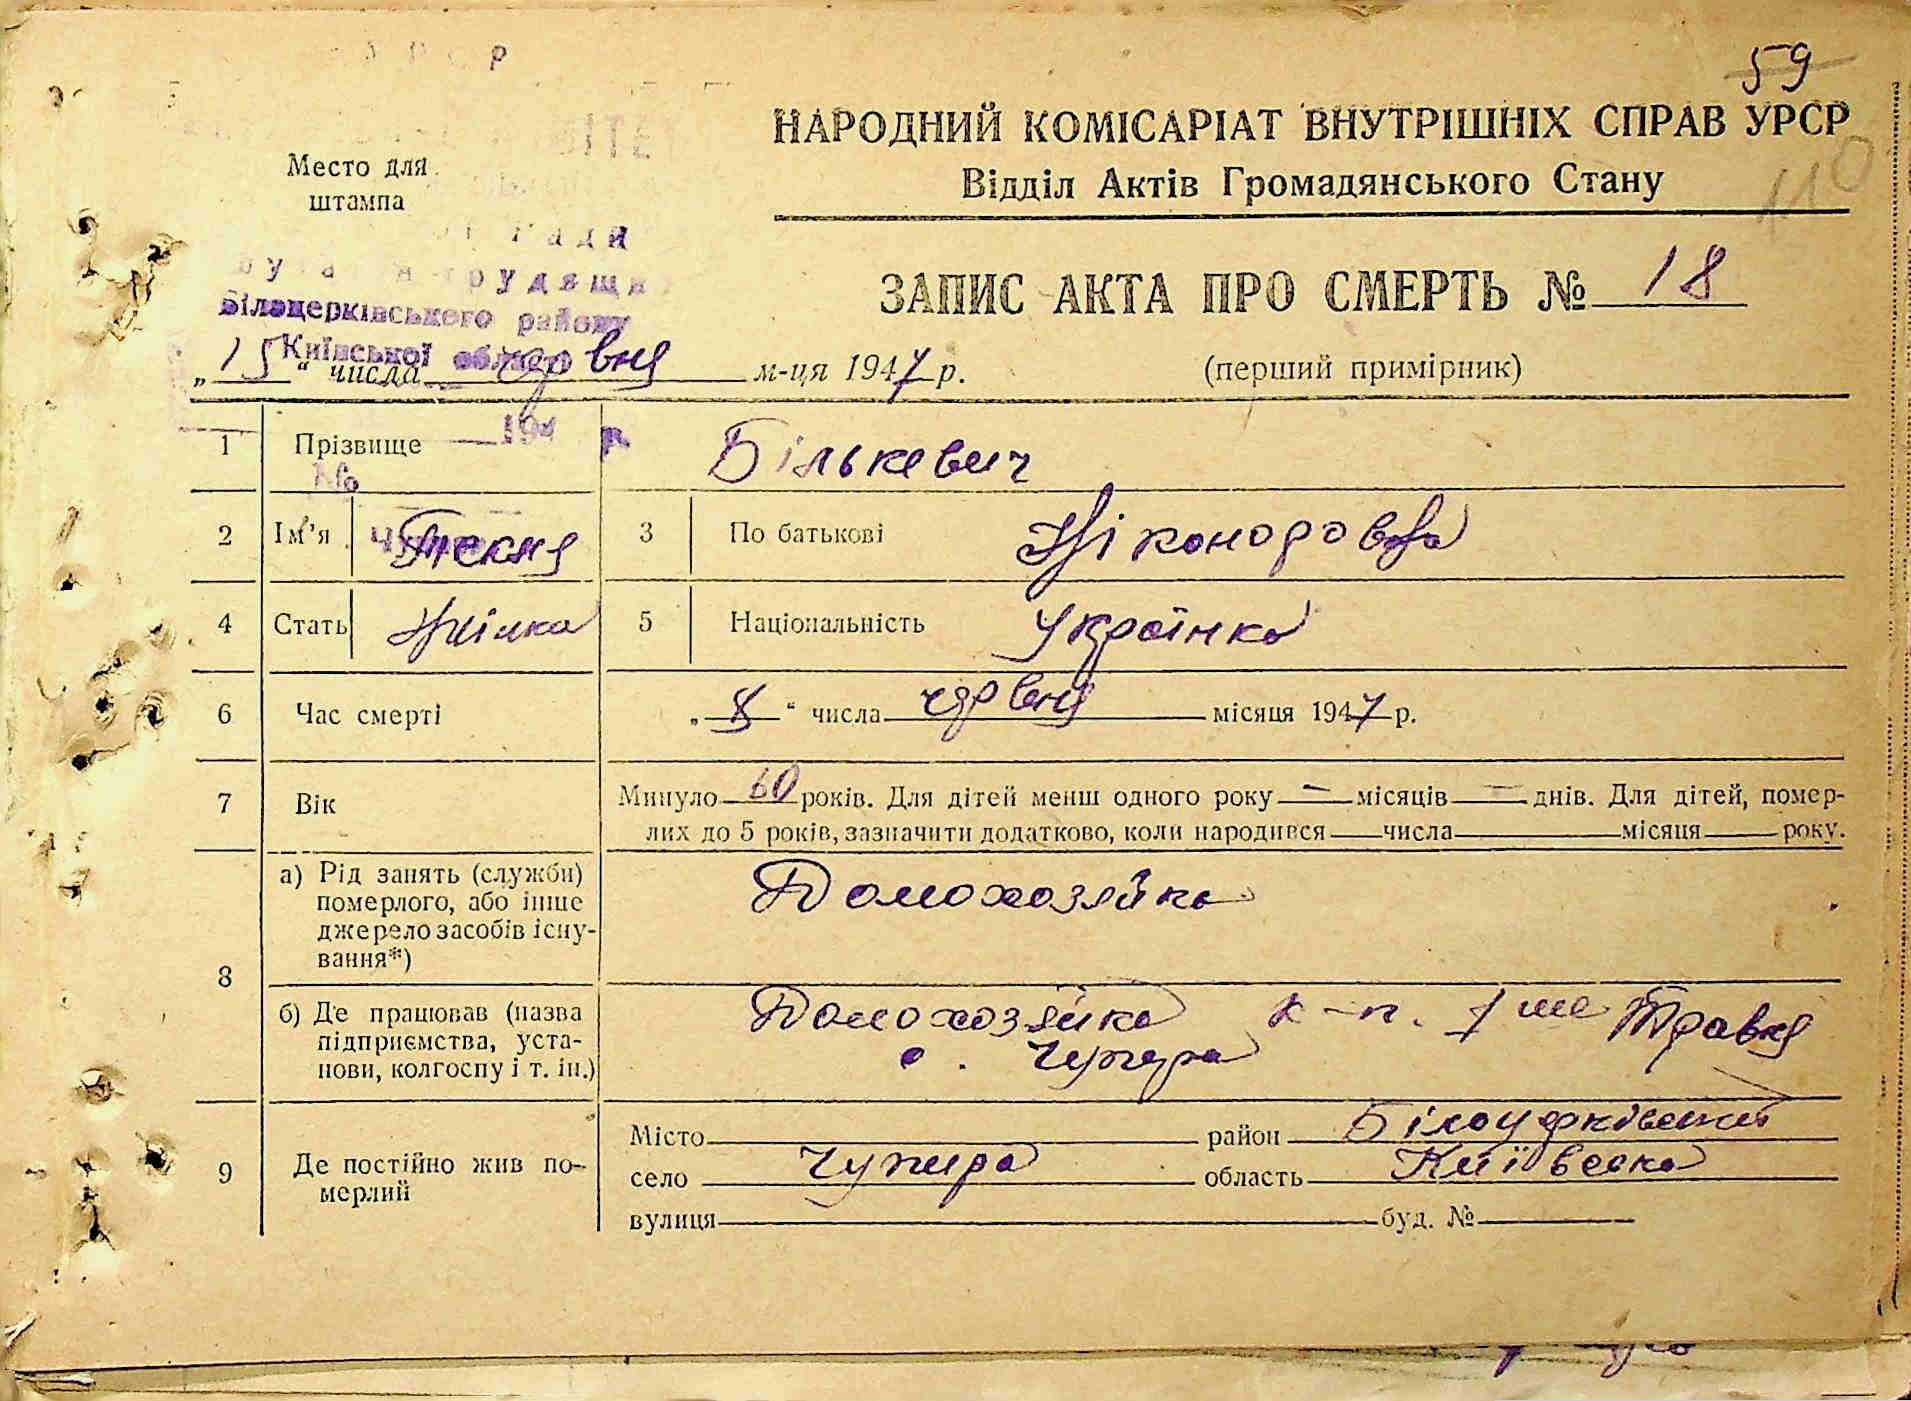 59
НАРОДНИЙ КОМІСАРІАТ ВНУТРІШНІХ СПРАВ УРСР
Відділ Актів Громадянського Стану
110
Место для
штампа
Білоцерківського району
Київської області
ЗАПИС АКТА ПРО СМЕРТЬ № 18
„15“ числа червня м-ця 1947 р.
(перший примірник)
194 р.
№
1 Прізвище Бількевич
2 Ім’я Текля 3 По батькові Ніконоровна
4 Стать Жінка 5 Національність Українка
6 Час смерті „8“ числа червня місяця 1947 р.
7 Вік Минуло 60 років. Для дітей менш одного року — місяців — днів. Для дітей, помер-
лих до 5 років, зазначити додатково, коли народився числа місяця року.
8 а) Рід занять (служби) померлого, або інше джерело засобів існу-вання*) Домохозяйка
б) Де працював (назва підприємства, уста-нови, колгоспу і т. ін.) Домохозяйка к-п. 1 ше Травня
с. Чупира
9 Де постійно жив по-мерлий
Місто район Білоцерківський
село Чупира область Київська
вулиця буд. №